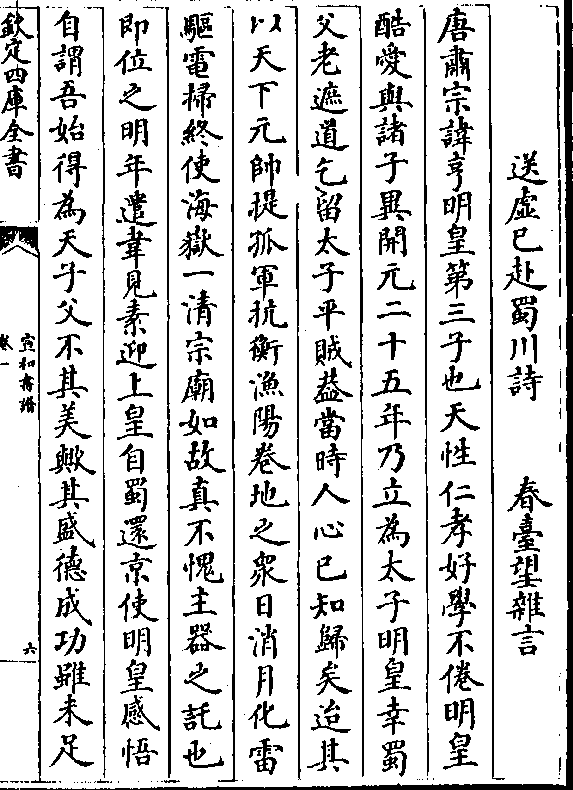 送虛己赴蜀川詩　春臺望雜言
唐肅宗諱亨明皇第三子也天性仁孝好學不倦明皇
酷愛與諸子異開元二十五年乃立為太子明皇幸蜀
父老遮道乞留太子平賊葢當時人心已知歸矣迨其
以天下元帥提孤軍抗衡漁陽卷地之衆日消月化雷
驅電掃終使海嶽一清宗廟如故真不愧主器之託也
即位之明年遣韋見素迎上皇自蜀還京使明皇感悟
自謂吾始得為天子父不其美歟其盛德成功雖未足
欽定四庫全書
宣和書譜
卷一
六